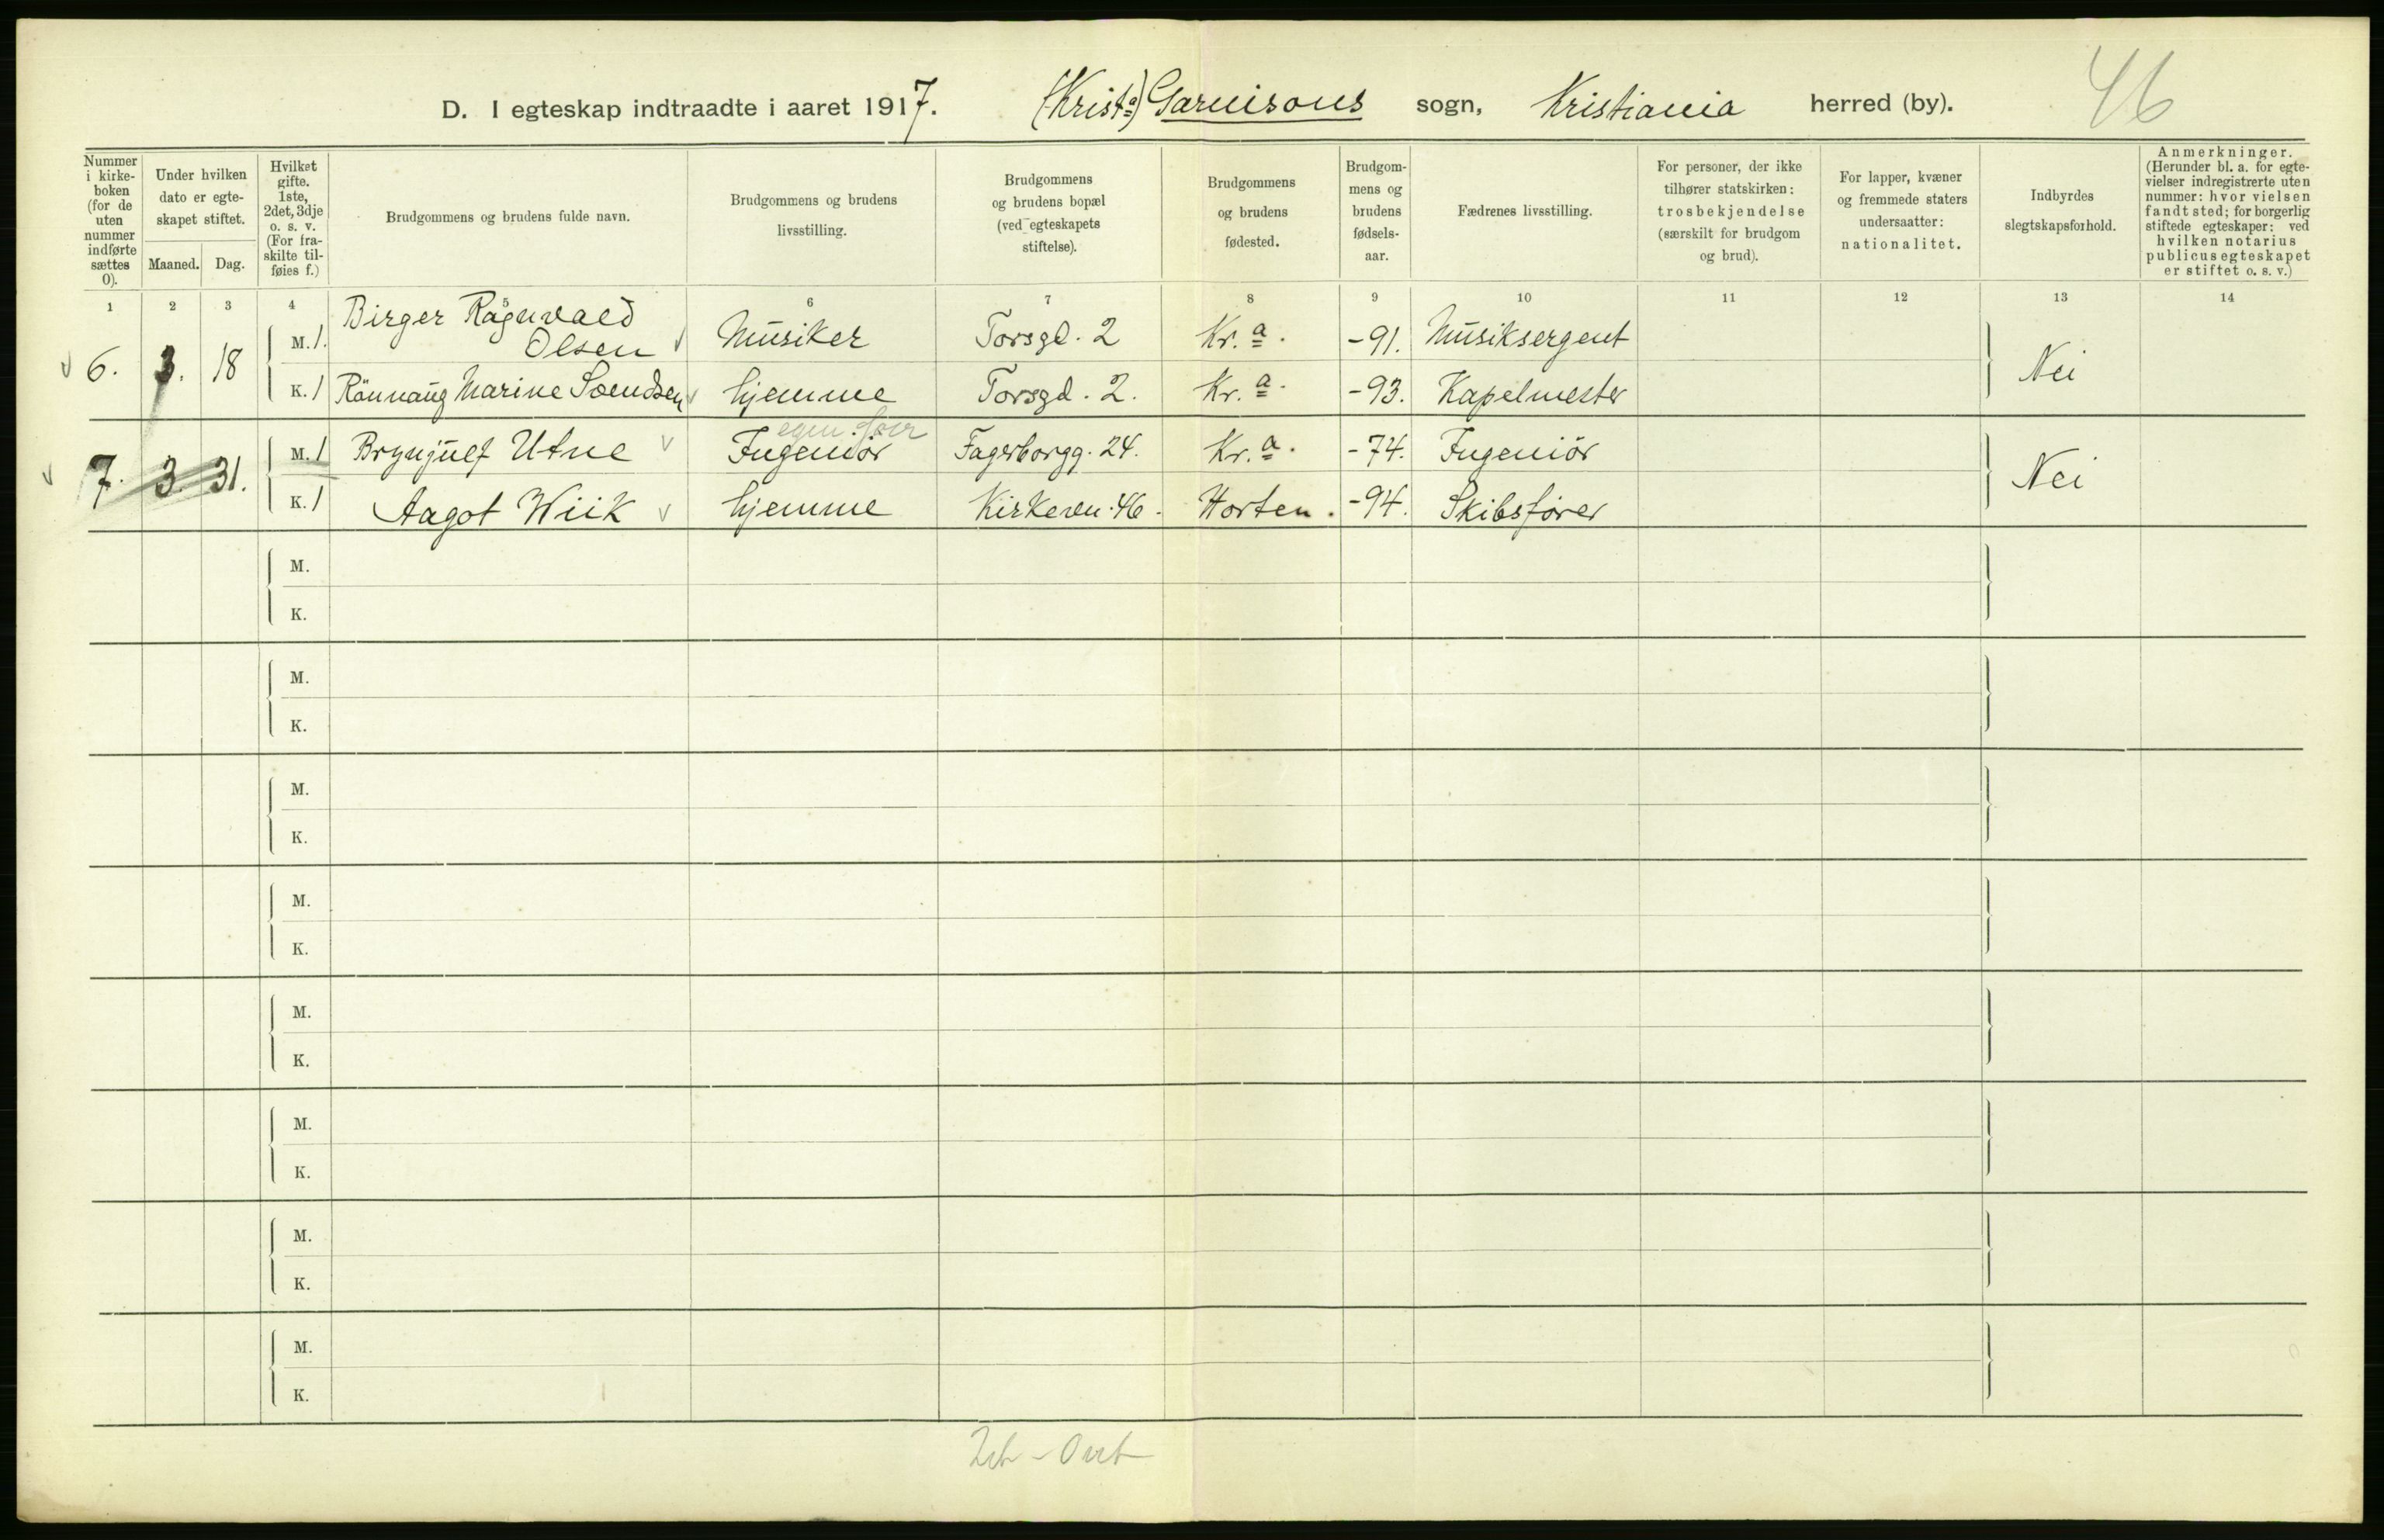 D. I egteskap indtraadte i aaret 1917. (Krista) Garnisons sogn, Kristiania herred (by). 46
Nummer i kirkeboken (for de uten nummer indførte sættes 0).
Under hvilken dato er egteskapet stiftet.
Maaned. Dag.
Hvilket gifte. 1ste, 2det, 3dje o. s. v. (For fraskilte tilføies f.)
Brudgommens og brudens fulde navn.
Brudgommens og brudens livsstilling.
Brudgommens og brudens bopæl (ved egteskapets stiftelse).
Brudgommens og brudens fødested.
Brudgommens og brudens fødselsaar.
Fædrenes livsstilling.
For personer, der ikke tilhører statskirken: trosbekjendelse (særskilt for brudgom og brud).
For lapper, kvæner og fremmede staters undersaatter: nationalitet.
Indbyrdes slegtskapsforhold.
Anmerkninger. (Herunder bl. a. for egtevielser indregistrerte uten nummer: hvor vielsen fandt sted; for borgerlig stiftede egteskaper: ved hvilken notarius publicus egteskapet er stiftet o. s. v.)
1 2 3 4 6 7 8 9 10 11 12 13 14
6. 3. 18 M. 1. Birger Ragnvald Olsen Musiker Torsgd. 2 Kr.a. -91. Musiksergent Nei
K. 1 Rönnaug Marine Svendsen hjemme Torsgd. 2. Kr.a. -93. Kapelmester
7. 3. 31. M. 1 Brynjulf Utne Ingeniör Fagerborgg. 24. Kr.a. -74. Ingeniör Nei
K. 1 Aagot Wiik hjemme Kirkevn. 46. Horten. -94. Skibsfører
M.
K.
M.
K.
M.
K.
M.
K.
M.
K.
M.
K.
M.
K.
M.
K.